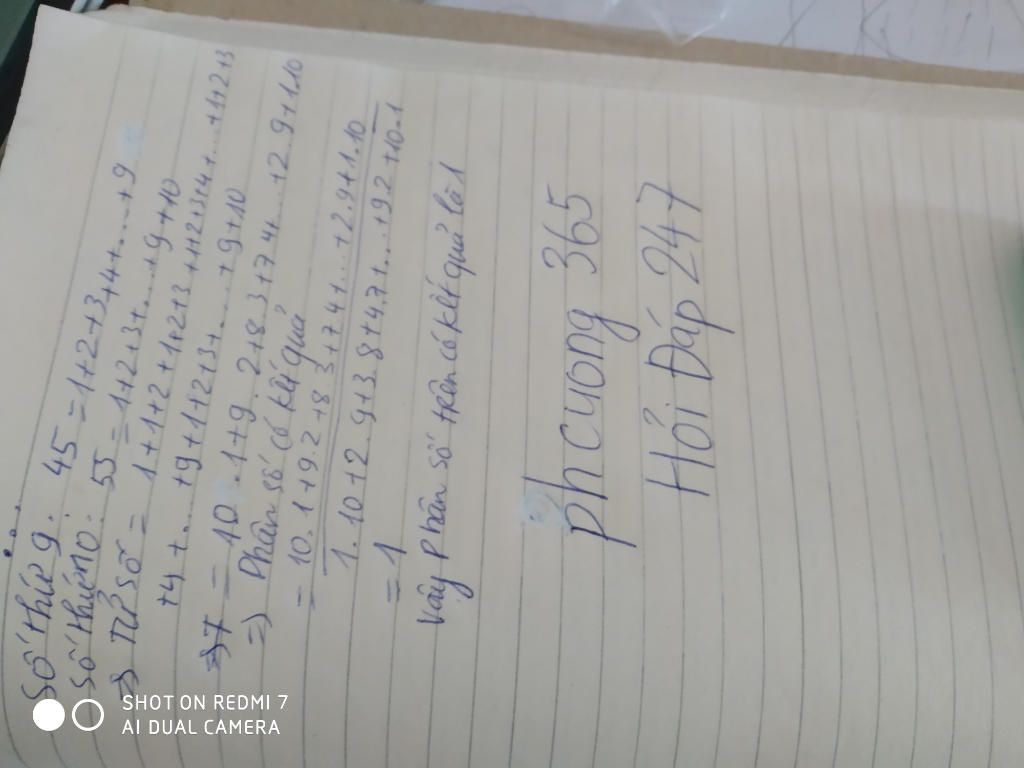 Số thứ 9: 45 = 1+2+3+4+....+9
Số thứ 10: 55 = 1+2+3+....+9+10
=> Tử số = 1+1+2+1+2+3+1+2+3+4+...+1+2+3
+4+....+9+1+2+3+....+9+10
= 10.1+9.2+8.3+7.4....+2.9+1.10
=> Phân số có kết quả
= 10.1+9.2+8.3+7.4+...+2.9+1.10
1.10+2.9+3.8+4.7+...+9.2+10.1
= 1
Vậy phân số trên có kết quả là 1
phcuong 365
Hỏi Đáp 247
SHOT ON REDMI 7
AI DUAL CAMERA